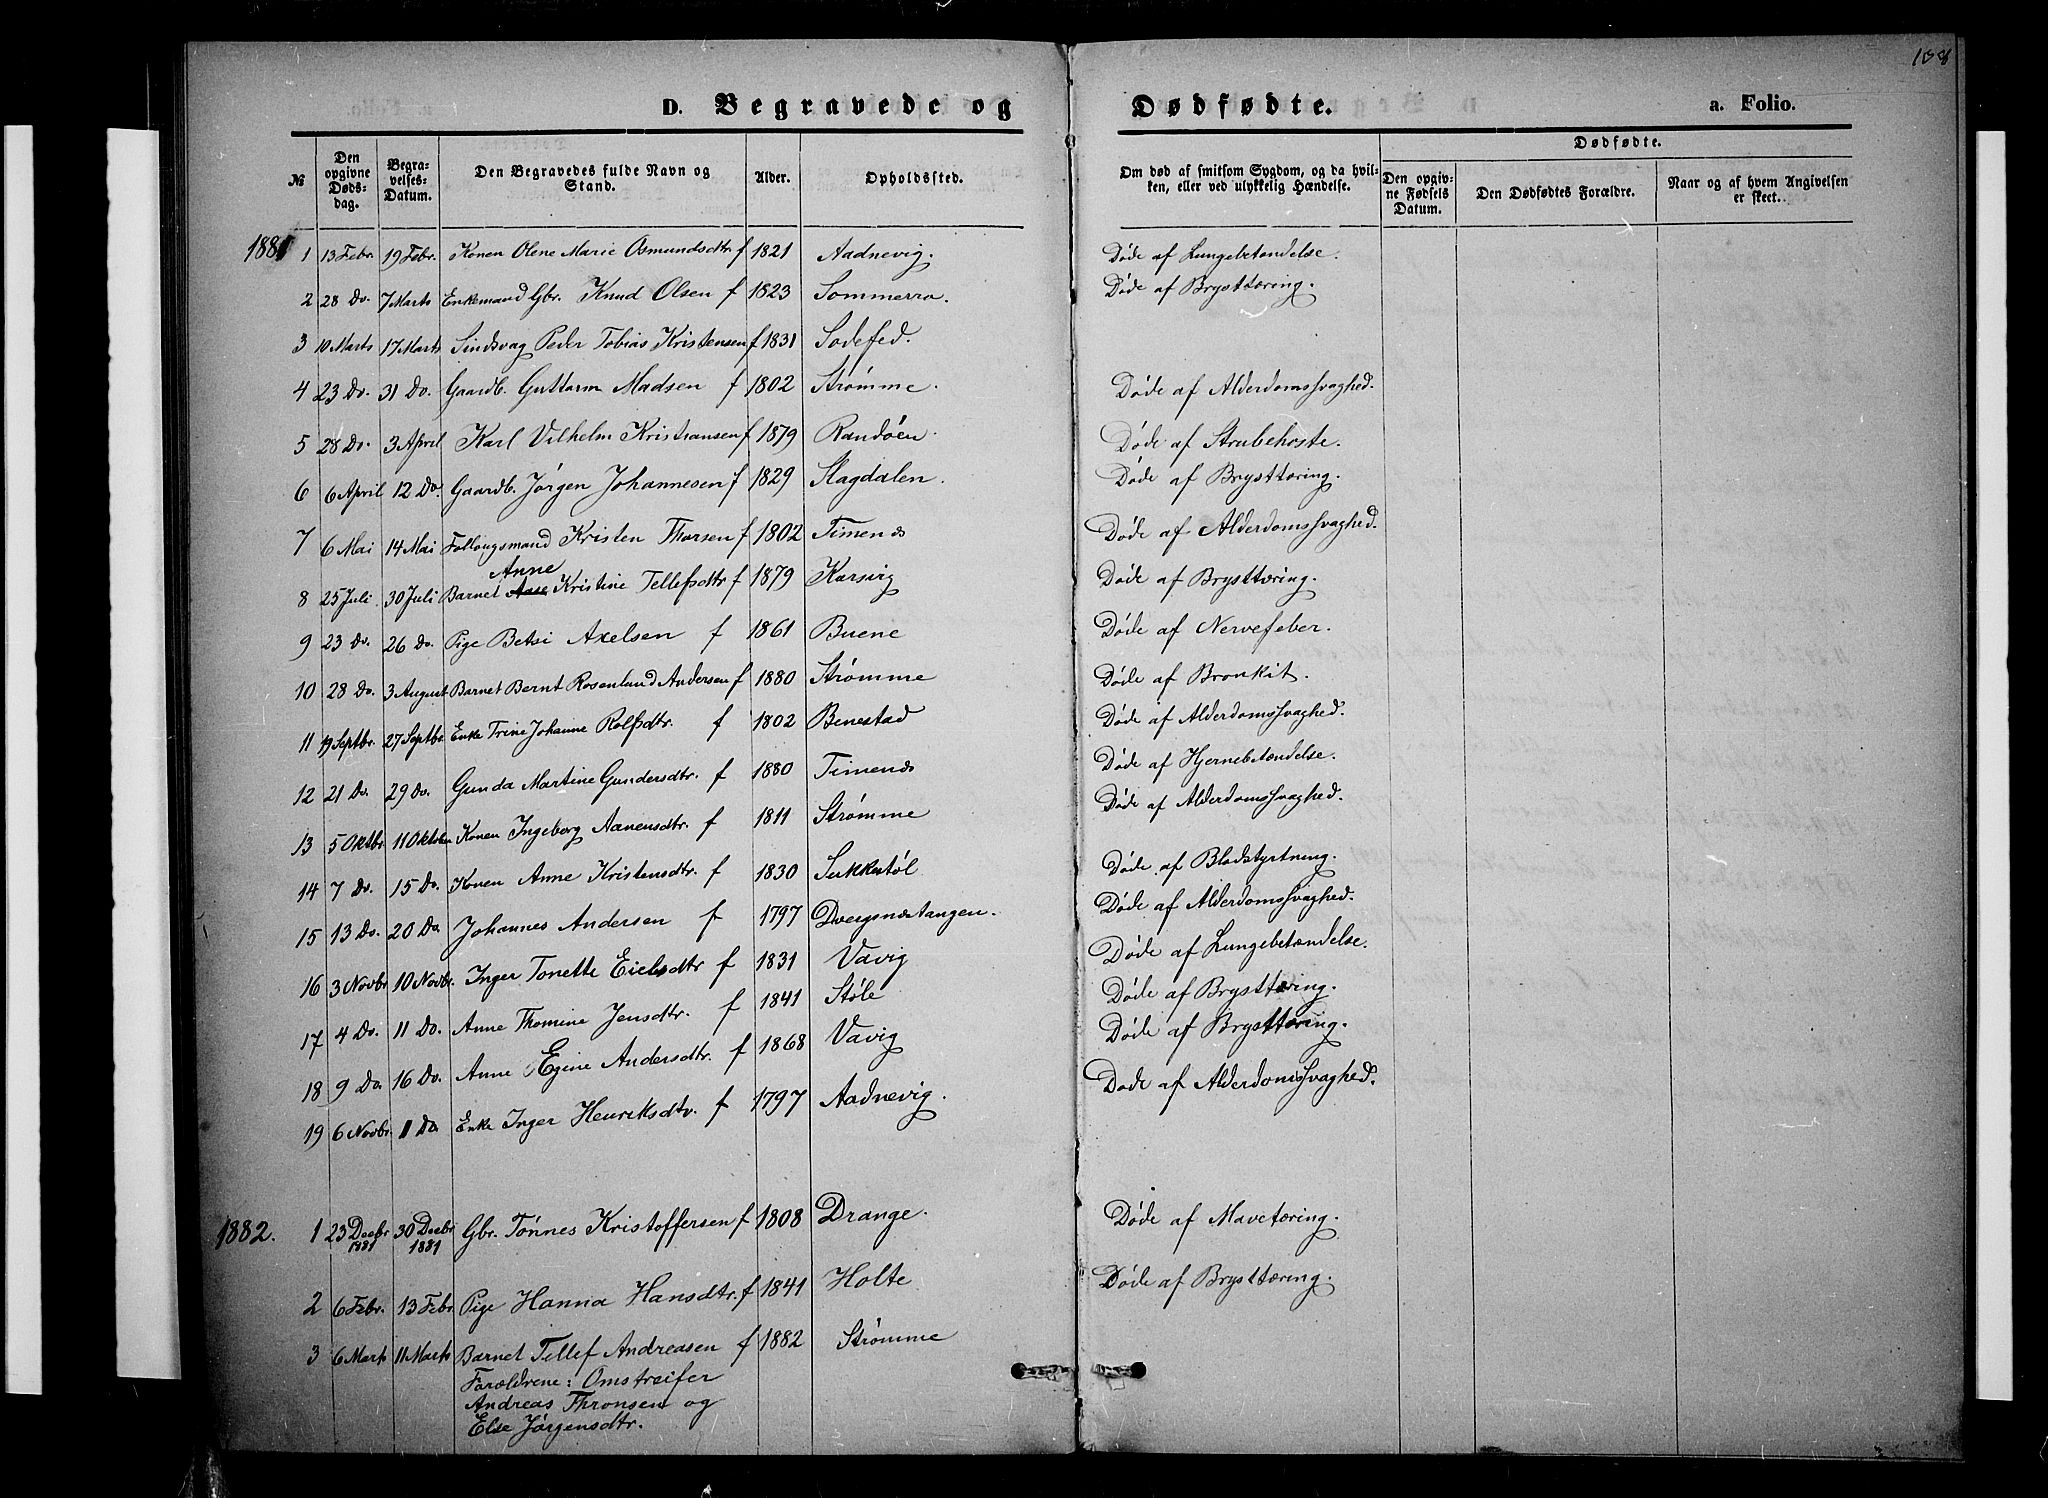 108
D. Begravede og Dødfødte. a. Folio.
№ Den opgivne Døds-dag. Begra-velses-Datum. Den Begravedes fulde Navn og Stand. Alder. Opholdssted. Om død af smitsom Sygdom, og da hvil-ken, eller ved ulykkelig Hændelse. Dødfødte. Den opgiv-ne Fødsels Datum. Den Dødfødtes Forældre. Naar og af hvem Angivelsen er skeet.
1881 1 13 Febr. 19 Febr. Konen Olene Marie Osmundsdtr f 1821 Aadnevig. Døde af Lungebetændelse.
2 28 Do. 7 Marts Enkemand Gbr. Knud Olsen f 1823 Sommerro. Døde af Brysttæring.
3 10 Marts 17 Marts Sindsvag Peder Tobias Kristensen f 1831 Sodefed.
4 23 Do. 31 Do. Gaardb. Guttorm Madsen f 1802 Strømme. Døde af Alderdomssvaghed.
5 28 Do. 3 April Karl Vilhelm Kristiansen f 1879 Randøen. Døde af Strubehoste.
6 6 April 12 Do. Gaardb. Jørgen Johannesen f 1829 Slagdalen. Døde af Brysttæring.
7 6 Mai 14 Mai Kristen Thorsen f 1802 Timenes Døde af Alderdomssvaghed.
Anne
8 25 Juli 30 Juli Barnet Aase Kristine Tellefsdtr f 1879 Korsvig Døde af Brysttæring.
9 23 Do. 26 Do. Pige Betsi Axelsen f 1861 Buene Døde af Nervefeber.
10 28 Do. 3 August Barnet Bernt Rosenlund Andersen f 1880 Strømme Døde af Bronkit.
11 19 Septbr. 27 Septbr. Enke Trine Johanne Rolfsdtr. f 1802 Benestad Døde af Alderdomssvaghed.
12 21 Do. 29 Do. Gunda Martine Gundersdtr. f 1880 Timenes Døde af Hjernebetændelse.
13 5 Oktbr. 11 Oktober Konen Ingeborg Aanensdtr. f 1811 Strømme Døde af Alderdomssvaghed.
14 7 Do. 15 Do. Konen Anne Kristensdtr. f 1830 Sukkutøl Døde af Blodstyrtning.
15 13 Do. 20 Do. Johannes Andersen f 1797 Dvergsnæstangen. Døde af Alderdomssvaghed.
16 3 Novbr 10 Novbr. Inger Tonette Eielsdtr f 1831 Vævig Døde af Lungebetændelse.
17 4 Do. 11 Do. Anne Thomine Jensdtr. f 1841 Støle Døde af Brysttæring.
18 9 Do. 16 Do. Anne Egine Andersdtr. f 1868 Vævig Døde af Brysttæring.
19 6 Novbr. 11 Do. Enke Inger Henriksdtr. f 1797 Aadnevig. Døde af Alderdomssvaghed.
1882. 1 23 Decbr 1881 30 Decbr 1881 Gbr. Tønnes Kristoffersen f 1808 Drange. Døde af Mavetæring.
2 6 Febr. 13 Febr. Pige Hanna Hansdtr. f 1841 Holte Døde af Brysttæring.
3 6 Marts 11 Marts Barnet Tellef Andreasen f 1882 Strømme
Forældrene: Omstreifer
Andreas Thronsen og
Else Jørgensdtr.